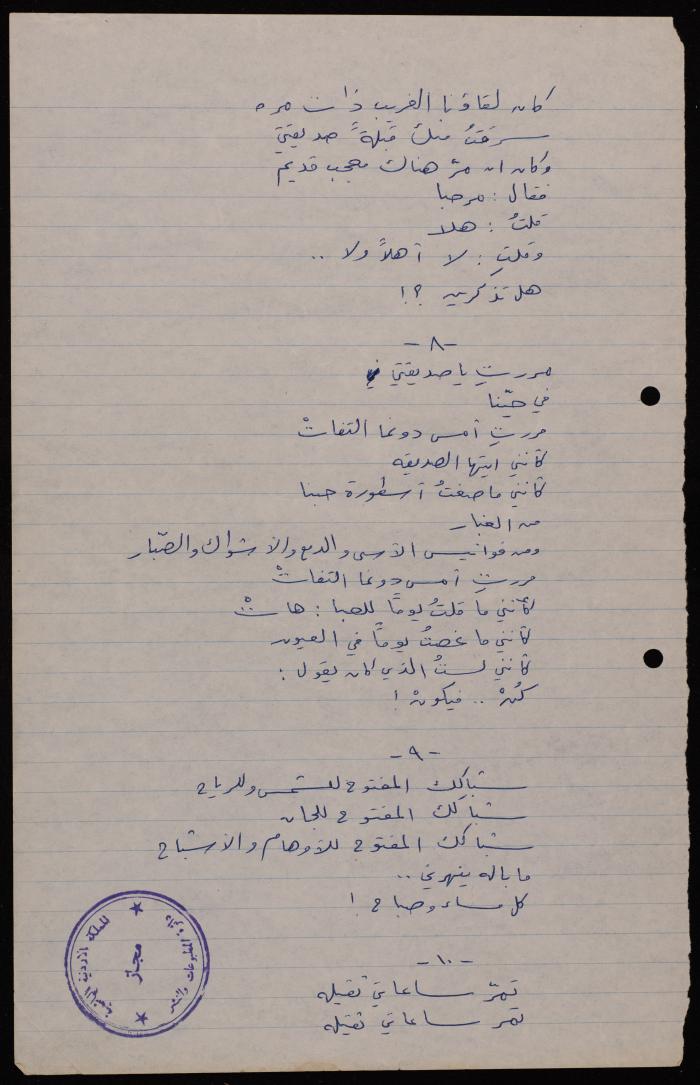 كان لقاؤنا الغريب ذات مره
سرقتُ منك قبلةً صديقتي
وكان ان مرّ هناك معجب قديم
فقال : مرحبا
قلتُ : هلا
وقلتِ : لا أهلاً ولا ..
هل تذكرين ؟!
-٨-
مررتِ يا صديقتي
في حيّنا
مررتِ أمس دونما التفاتْ
كأنني ايتها الصديقه
كأنني ما صغتُ أسطورة حبنا
من الغبار
ومن فوانيس الأسى والدمع والأشواك والصّبار
مررتِ أمس دونما التفاتْ
كأنني ما قلتُ يوماً للصبا : هاتْ
كأنني ما غصتُ يوماً في العيون
كأنني لستُ الذي كان يقول :
كُنْ .. فيكونْ !
-٩-
شباكك المفتوح للشمس وللرياح
شباكك المفتوح للجان
شباكك المفتوح للأوهام والأشباح
ما باله ينهرني ..
كل مساء وصباح !
-١٠-
تمرّ ساعاتي ثقيله
تمر ساعاتي ثقيله
المملكة الاردنية الهاشمية
مجاز
دائرة المطبوعات والنشر